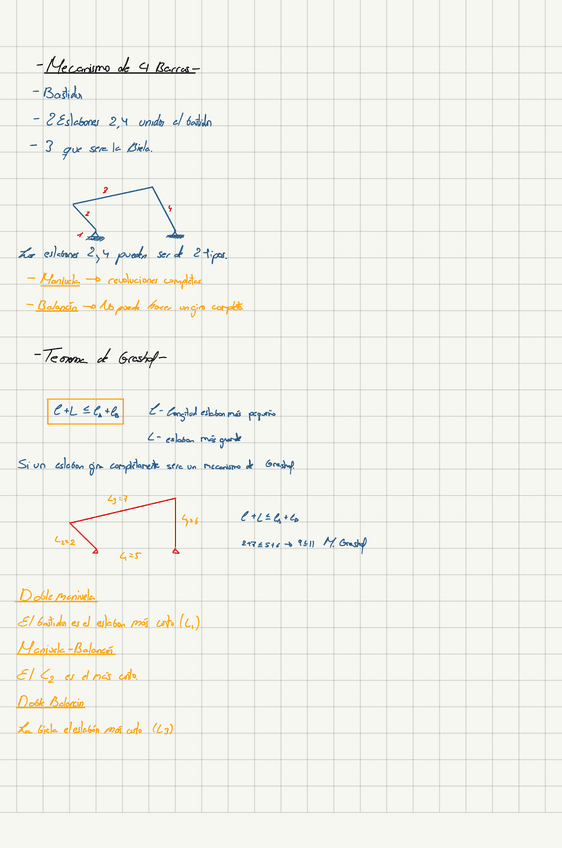 - Mecanismo de 4 Barras -
- Bastidor
- 2 Eslabones 2,4 unidos al bastidor
- 3 que sera la Biela.
3
2
4
1
Los eslabones 2,4 pueden ser de 2 tipos.
- Manivela → revoluciones completas
- Balancín → No puede hacer un giro completo
- Teorema de Grashof -
l + L ≤ la + lb
l - longitud eslabon más pequeño
L - eslabon más grande
Si un eslabon gira completamente sera un mecanismo de Grashof
L3=7
L2=2
L4=6
L1=5
l + L ≤ la + lb
2+7 ≤ 5+6 → 9≤11 M. Grashof
Doble manivela
El bastidor es el eslabon más corto (L1)
Manivela-Balancín
El L2 es el más corto
Doble Balancín
La biela el eslabón más corto (L3)